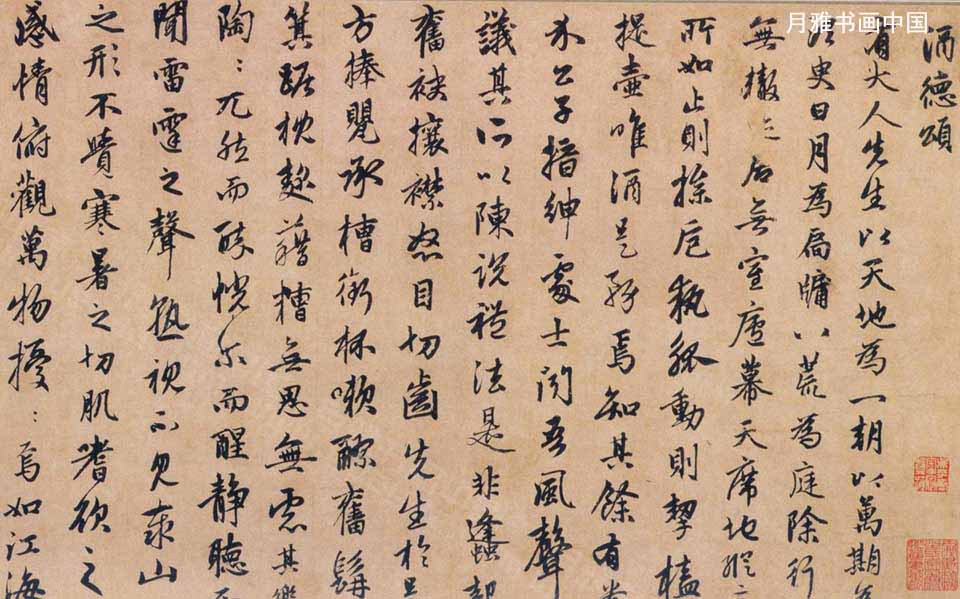 月雅书画中国
酒德頌
有大人先生以天地為一朝以萬期為
須臾日月為扃牖八荒為庭除行
無轍跡居無室廬幕天席地縱
所如止則操卮執瓢動則挈榼
提壺唯酒是務焉知其餘有貴
介公子搢紳處士聞吾風聲
議其所以陳說禮法是非蠭起
奮袂攘襟怒目切齒先生於是
方捧甖承槽銜杯漱醪奮髯
箕踞枕麴藉糟無思無慮其樂
陶:兀然而醉怳尔而醒靜聽不
聞雷霆之聲熟視不見泰山
之形不覺寒暑之切肌嗜欲之
感情俯觀萬物擾:焉如江海